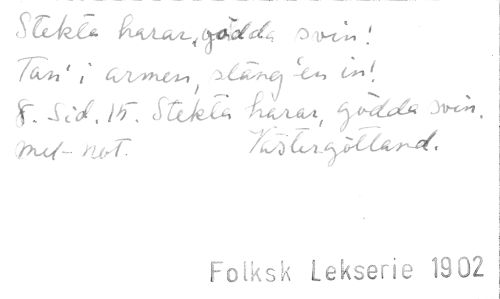 Stekta harar, gödda svin!
Tan' i armen, släng 'en in!
8. Sid. 15. Stekta harar, gödda svin.
mel-not. Västergötland.
Folksk Lekserie 1902